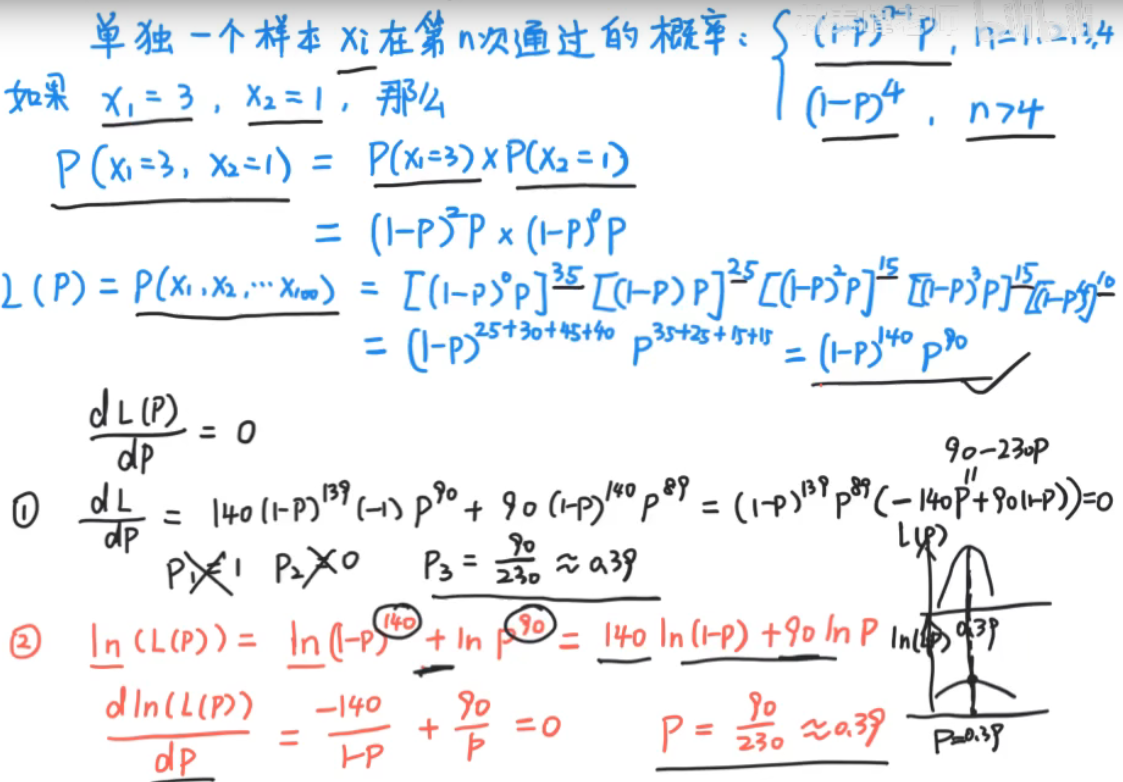 单独一个样本 xi 在第n次通过的概率: { (1-P)ⁿ⁻¹P, n=1,2,3,4
如果 x₁=3, x₂=1, 那么 (1-P)⁴, n>4
P(x₁=3, x₂=1) = P(x₁=3)×P(x₂=1)
= (1-P)²P × (1-P)⁰P
L(P) = P(x₁,x₂,…x₁₀₀) = [(1-P)⁰P]³⁵ [(1-P)P]²⁵ [(1-P)²P]¹⁵ [(1-P)³P]¹⁵ [(1-P)⁴]¹⁰
= (1-P)²⁵⁺³⁰⁺⁴⁵⁺⁴⁰ P³⁵⁺²⁵⁺¹⁵⁺¹⁵ = (1-P)¹⁴⁰ P⁹⁰ ✓
dL(P)/dP = 0
90-230P
① dL/dP = 140(1-P)¹³⁹(-1)P⁹⁰ + 90(1-P)¹⁴⁰P⁸⁹ = (1-P)¹³⁹P⁸⁹(-140P+90(1-P))=0
P₁=1 P₂=0 P₃ = 90/230 ≈ 0.39
L(P)
0.39
② ln(L(P)) = ln(1-P)¹⁴⁰ + ln P⁹⁰ = 140 ln(1-P) + 90 ln P
ln(LP)
dln(L(P))/dP = -140/1-P + 90/P = 0 P = 90/230 ≈ 0.39
P=0.39